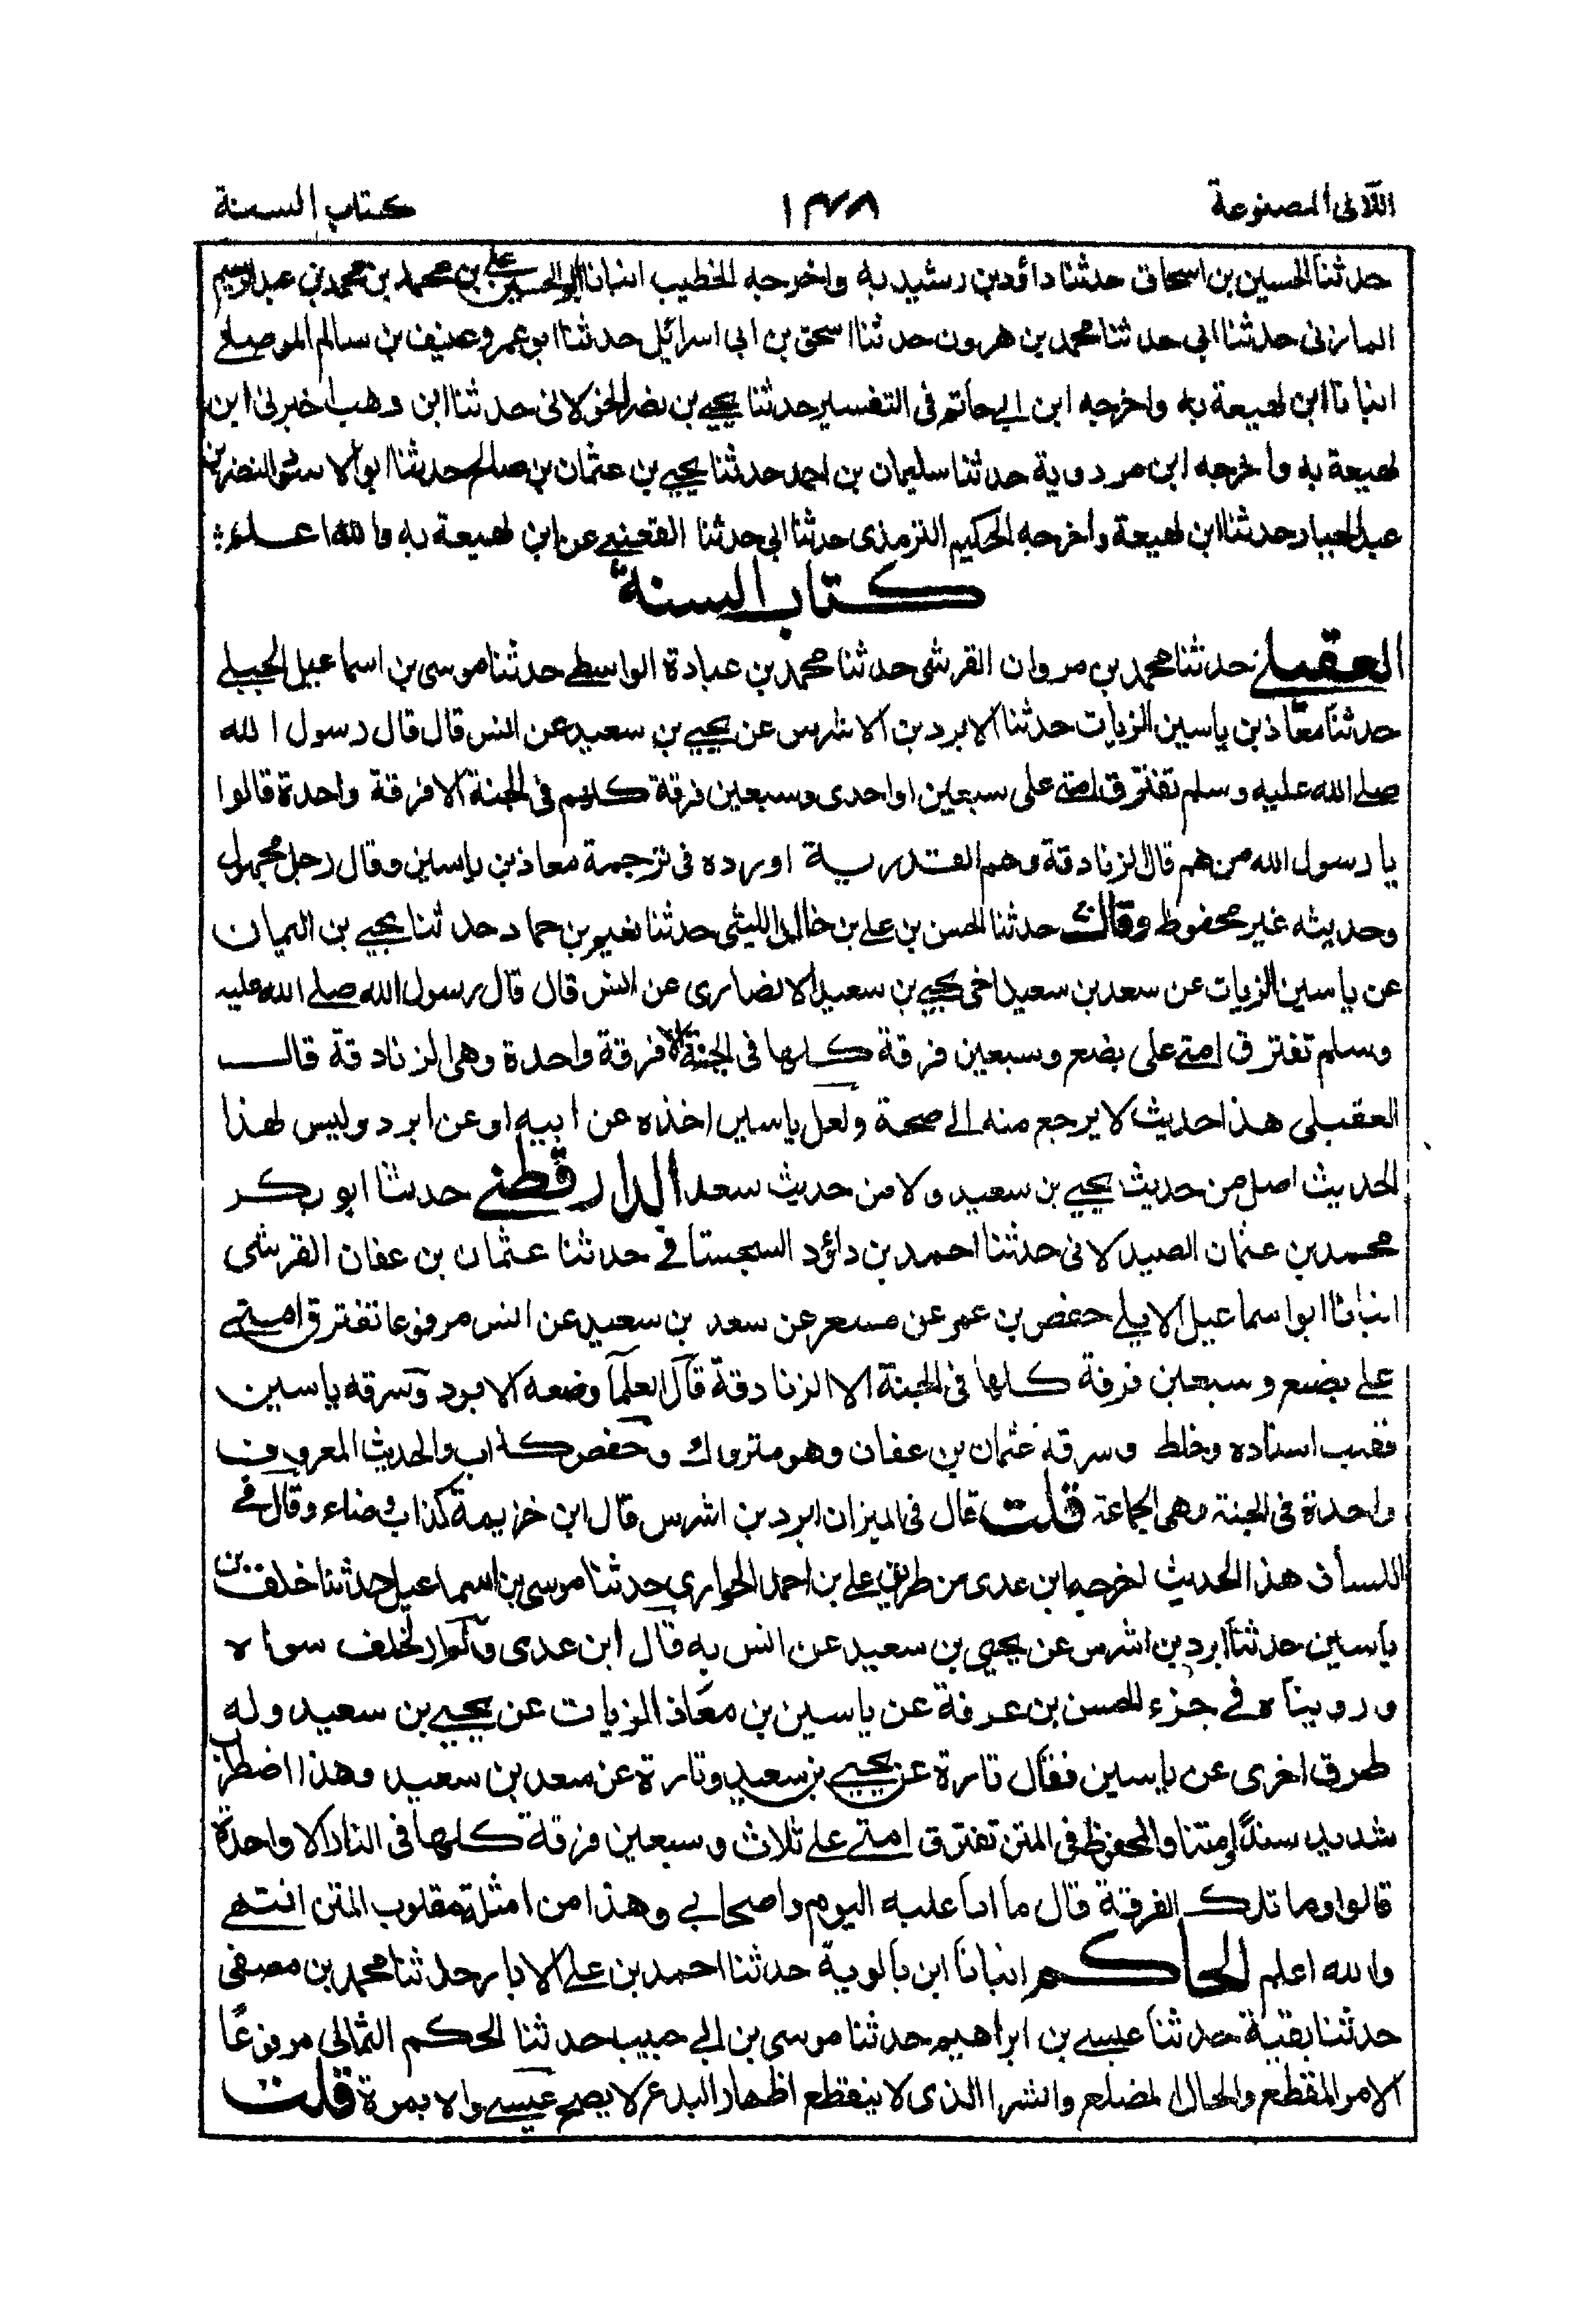 اللآلى المصنوعة
١٢٨
كتاب السنة
حدثنا الحسين بن اسحاق حدثنا داؤد بن رشيد به واخرجه الخطيب انبانا ابو الحسين علي بن محمد بن محمد بن عبد الرحيم
المازنى حدثنا ابي حدثنا محمد بن هرون حدثنا اسحق بن ابى اسرائيل حدثنا ابو عمرو عفيف بن سالم الموصلي
انبانا ابن لهيعة به واخرجه ابن ابي حاتم فى التفسير حدثنا يحيي بن نصر الخولانى حدثنا ابن وهب اخبرنى ابن
لهيعة به واخرجه ابن مردوية حدثنا سليمان بن احمد حدثنا يحيي بن عثمان بن صالح حدثنا ابو الاسود النضر بن
عبد الجبار حدثنا ابن لهيعة واخرجه الحكيم الترمذى حدثنا ابي حدثنا القعنبي عن ابن لهيعة به والله اعلم
كتاب السنة
العقيلي حدثنا محمد بن مروان القرشى حدثنا محمد بن عبادة الواسطي حدثنا موسى بن اسماعيل الجبلي
حدثنا معاذ بن ياسين الزيات حدثنا الابرد بن الاشرس عن يحيي بن سعيد عن انس قال قال رسول الله
صلي الله عليه وسلم تفترق امتي على سبعين او احدى وسبعين فرقة كلهم فى الجنة الا فرقة واحدة قالوا
يا رسول الله من هم قال الزنادقة وهم القدرية اورده فى ترجمة معاذ بن ياسين وقال رجل مجهول
وحديثه غير محفوظ وقال حدثنا الحسن بن علي بن خالد الليثى حدثنا نعيم بن حماد حدثنا يحيي بن اليمان
عن ياسين الزيات عن سعد بن سعيد اخى يحيي بن سعيد الانصارى عن انس قال قال رسول الله صلي الله عليه
وسلم تفترق امتي على بضع وسبعين فرقة كلها فى الجنة الا فرقة واحدة وهى الزنادقة قال
العقيلى هذا حديث لا يرجع منه الي صحة ولعل ياسين اخذه عن ابيه او عن ابرد وليس لهذا
الحديث اصل من حديث يحيي بن سعيد ولا من حديث سعد الدارقطني حدثنا ابو بكر
محمد بن عثمان الصيدلانى حدثنا احمد بن داؤد السجستاني حدثنا عثمان بن عفان القرشى
انبانا ابو اسماعيل الايلي حفص بن عمر عن مسعر عن سعد بن سعيد عن انس مرفوعا تفترق امتي
علي بضع وسبعين فرقة كلها فى الجنة الا الزنادقة قال العلمآ وضعه الابرد وسرقه ياسين
فقلب اسناده وخلط وسرقه عثمان بن عفان وهو متروك وحفص كذاب والحديث المعروف
واحدة فى الجنة وهى الجماعة قلت قال فى الميزان ابرد بن اشرس قال ابن خزيمة كذاب وضاع وقال في
اللسان هذا الحديث اخرجه ابن عدى من طريق علي بن احمد الحوارى حدثنا موسى بن اسماعيل حدثنا خلف بن
ياسين حدثنا ابرد بن اشرس عن يحيي بن سعيد عن انس به قال ابن عدى ولم ار لخلف سواه
ورويناه في جزء للحسن بن عرفة عن ياسين بن معاذ الزيات عن يحيي بن سعيد وله
طرق اخرى عن ياسين فقال تارة عن يحيي بن سعيد وتارة عن سعد بن سعيد وهذا اضطراب
شديد سندًا ومتنا والمحفوظ فى المتن تفترق امتي علي ثلاث وسبعين فرقة كلها فى النار الا واحدة
قالوا وما تلك الفرقة قال ما انا عليه اليوم واصحابي وهذا من امثلة مقلوب المتن انتهي
والله اعلم الحاكم انبانا ابن بالوية حدثنا احمد بن علي الابار حدثنا محمد بن مصفى
حدثنا بقية حدثنا عيسي بن ابراهيم حدثنا موسى بن ابي حبيب حدثنا الحكم الثمالي مرفوعًا
الامر المفظع والحال المضلع والشر الذى لا ينقطع اظهار البدع لا يصح عيسي والا بمرة قلت